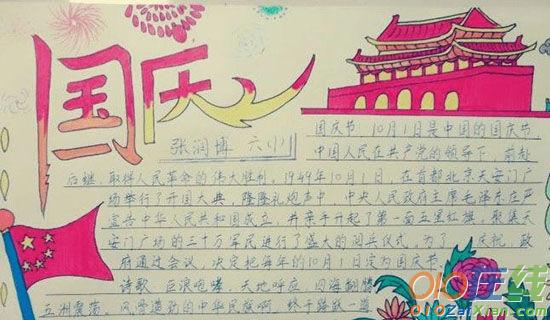 国庆
张润博 六(1)
国庆节,10月1日是中国的国庆节,
中国人民在共产党的领导下,前赴
后继,取得人民革命的伟大胜利,1949年10月1日,在首都北京天安门广
场举行了开国大典,隆隆礼炮声中,中央人民政府主席毛泽东庄严
宣告中华人民共和国成立,并亲手升起了第一面五星红旗,聚集天
安门广场的三十万军民进行了盛大的阅兵仪式,为了 庆祝,政
府通过会议 决定把每年的10月1日定为国庆节.
诗歌,巨浪咆哮,天地呼应,四海翻腾
五洲震荡,风雪
010在线
ZaiXian.com